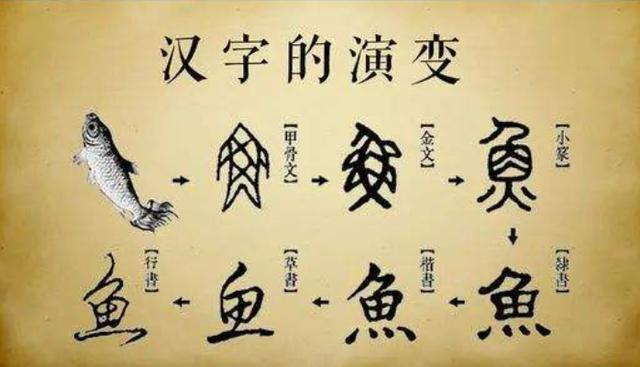 汉字的演变
【甲骨文】
【金文】
【小篆】
魚
【隸書】
魚
【楷書】
魚
【草書】
鱼
【行書】
魚